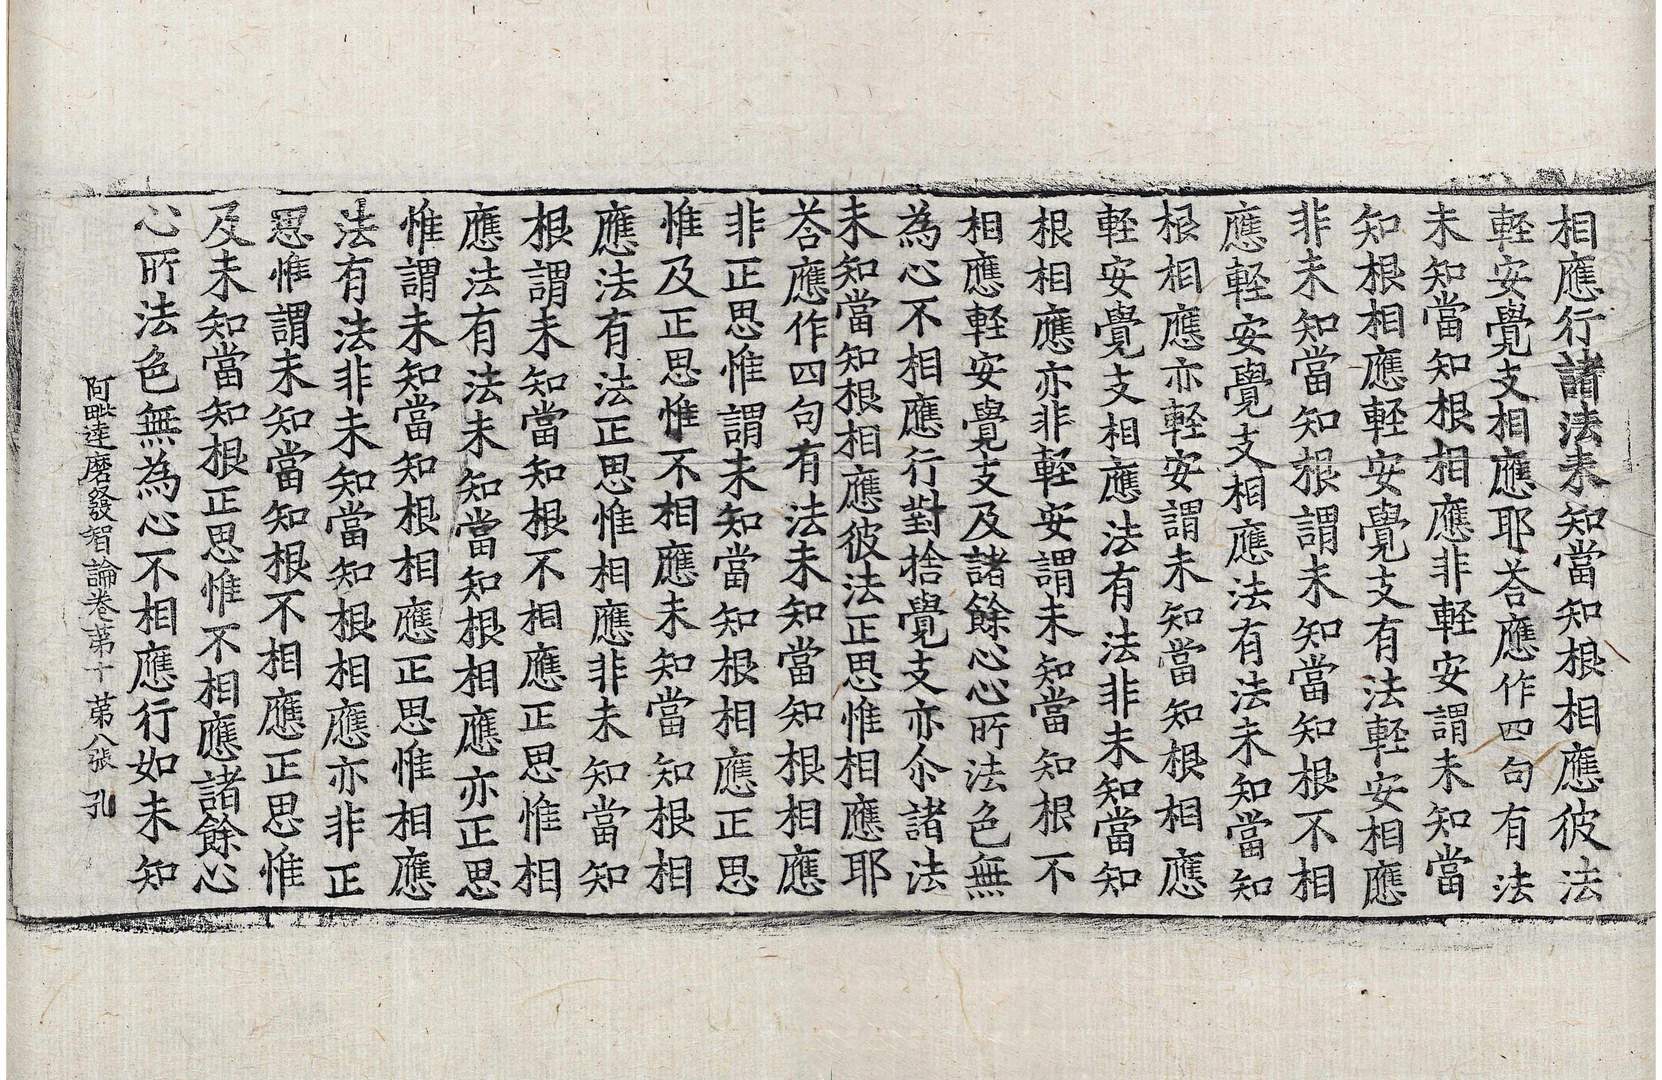 相應行諸法未知當知根相應彼法
軽安覺支相應耶荅應作四句有法
未知當知根相應非軽安謂未知當
知根相應軽安覺支有法軽安相應
非未知當知根謂未知當知根不相
應軽安覺支相應法有法未知當知
根相應亦軽安謂未知當知根相應
軽安覺支相應法有法非未知當知
根相應亦非軽安謂未知當知根不
相應軽安覺支及諸餘心心所法色無
為心不相應行對捨覺支亦尒諸法
未知當知根相應彼法正思惟相應耶
荅應作四句有法未知當知根相應
非正思惟謂未知當知根相應正思
惟及正思惟不相應未知當知根相
應法有法正思惟相應非未知當知
根謂未知當知根不相應正思惟相
應法有法未知當知根相應亦正思
惟謂未知當知根相應正思惟相應
法有法非未知當知根相應亦非正
思惟謂未知當知根不相應正思惟
及未知當知根正思惟不相應諸餘心
心所法色無為心不相應行如未知
阿毗達磨發智論卷第十 第八張 孔